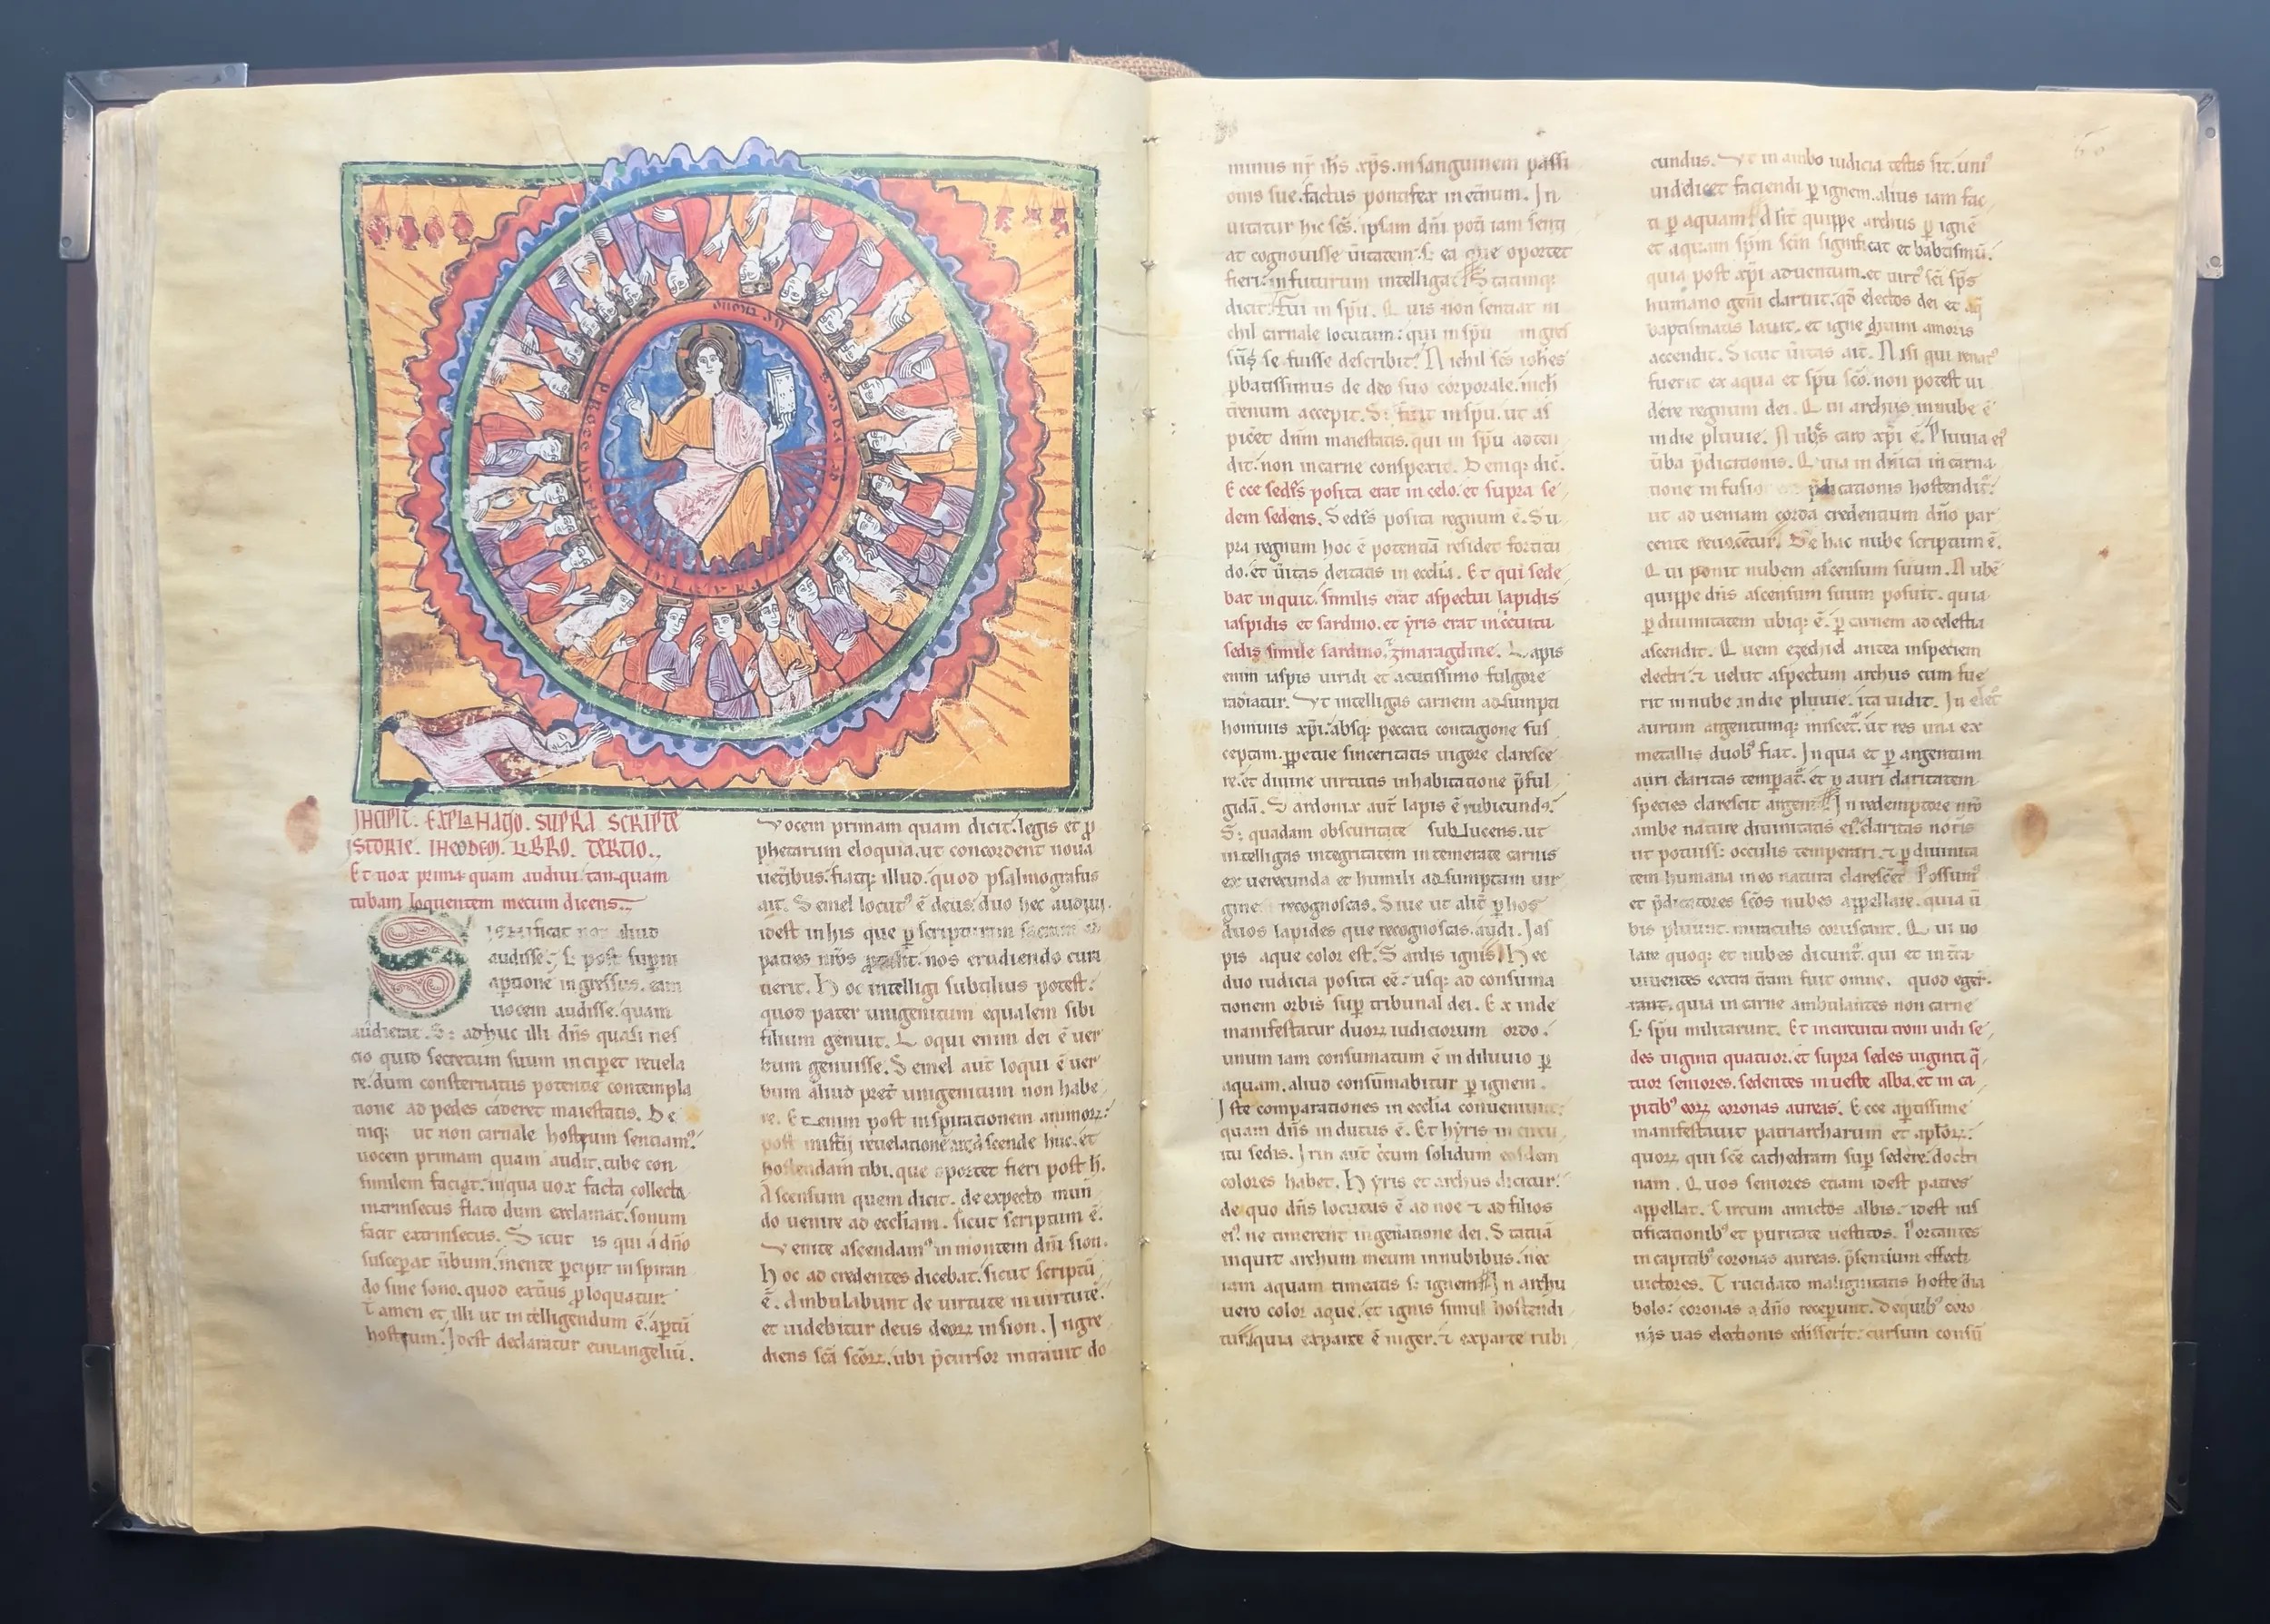 INCIPIT. EXPLANATIO. SUPRA SCRIPTE
ISTORIE. IN EODEM. LIBRO. TERTIO.
Et uox prima quam audiui tan quam
tubam loquentem mecum dicens.
Significat non aliud
audisse. s; post supra
aptione ingressus. eam
uocem audisse. quam
audierat. S; adhuc illi dn̄s quasi nes
cio quid secretum suum incip̄et reuela
re. dum consternatus potentie contempla
tione ad pedes caderet maiestatis. De
niq; ut non carnale hostrum sentiamꝰ
uocem primam quam audit. tube con
similem faciat. in qua uox facta collecta
intrinsecus flato dum exclamat. sonum
facit extrinsecus. Sicut is qui a dn̄o
susceperat ūbum. mente p̄cipit inspiran
do sine sono. quod extius p̄loquatur.
Tamen et illi ut intelligendum ē. ap̄tū
hostrum. Idest declaratur euuangeliū.
Vocem primam quam dicit. legis et p̄
phetarum eloquia. ut concordent noua
uetibus. fiatq; illud. quod psalmografus
ait. Semel locutꝰ ē deus. duo hec audiui.
idest in his que p̄ scripturam sacram ad
patres nr̄os nos erudiendo cura
uerit. Hoc intelligi subtilius potest.
quod pater unigenitum equalem sibi
filium genuit. Loqui enim dei ē uer
bum genuisse. Semel aut̄ loqui ē uer
bum aliud pret̄ unigenitum non habe
re. Et enim post inspirationem animoꝝ.
post mistij reuelationē ait. ascende huc. et
hostendam tibi. que oportet fieri post h.
Ascensum quem dicit. de expecto mun
do uenire ad eccl̄iam. sicut scriptum ē.
Venite ascendamꝰ in montem dn̄i sion.
Hoc ad credentes dicebat. sicut scriptū
ē. Ambulabunt de uirtute in uirtute.
et uidebitur deus deoꝝ in sion. Ingre
diens sc̄a sc̄oꝝ. ubi p̄cursor intrauit do
minus nr̄ ih̄s xp̄s. in sanguinem passi
onis sue. factus pontifex in et̄num. In
uitatur hic sc̄s. ipsam dn̄i potā iam senti
at cognouisse ūitatem. s; ea que oportet
fieri. in futurum intelligat. Statimq;
dicit. Fui in sp̄u. Quis non sentiat ni
chil carnale locutum: qui in sp̄u ingres
sūs se fuisse describit? Nichil sc̄s ioh̄es
p̄batissimus de deo suo corporale. nich
t̄renum accepit. S; fuit in sp̄u. ut as
picēt dn̄m maiestatis. qui in sp̄u ad ten
dit. non in carne conspexit. Deniq; dic̄.
Ecce sedis posita erat in celo. et supra se
dem sedens. Sedis posita regnum ē. Su
pra regnum hoc ē potentiā residet fortitu
do. et ūitas deitatis in eccl̄ia. Et qui sede
bat inquit. similis erat aspectui lapidis
iaspidis et sardino. et yris erat in c̄cuitu
sedis simile sardino. zmaragdine. Lapis
enim iaspis uiridi et acutissimo fulgore
radiatur. Vt intelligas carnem adsumpti
hominis xp̄i. absq; peccati contagione sus
ceptam. p̄petue sinceritatis uigore claresce
re. et diuine uirtutis inhabitatione p̄ful
gidā. Sardonix aut̄ lapis ē rubicundꝰ.
S; quadam obscuritate sublucens. ut
intelligas integritatem intemerate carnis
ex uerecunda et humili adsumptam uir
gine recognoscas. Siue ut alit̄ p̄ hos
duos lapides que recognoscas. audi. Ias
pis aque color est. Sardis ignis. Hec
duo iudicia posita eē. usq; ad consuma
tionem orbis sup̄ tribunal dei. Ex inde
manifestatur duoꝝ iudiciorum ordo.
unum iam consumatum ē in diluuio p̄
aquam. aliud consūmabitur p̄ ignem.
Iste comparationes in eccl̄ia conueniunt.
quam dn̄s indutus ē. Et hyris in circu
itu sedis. Irin aut̄ c̄cum solidum eosdem
colores habet. Hyris et archus dicitur.
de quo dn̄s locutus ē ad noe ⁊ ad filios
eiꝰ. ne timerent in generatione dei. Statuā
inquit archum meum in nubibus. nec
iam aquam timeatis s; ignem. In archu
uero color aque. et ignis simul hostendi
tur. quia exparte ē niger. ⁊ exparte rubi
cundus. Vt in ambo iudicia testis sit. uniꝰ
uidelicet faciendi p̄ ignem. alius iam fac
ti p̄ aquam. Adsit quippe archus p̄ ignē
et aquam sp̄m sc̄m significat et babtismū.
quia post xp̄i aduentum. et uirtꝰ sc̄i sp̄s
humano gen̄i claruit. qd̄ electos dei et aq̄
baptismatis lauit. et igne diuini amoris
accendit. Sicut ūitas ait. Nisi qui renatꝰ
fuerit ex aqua et sp̄u sc̄o. non potest ui
dere regnum dei. Qui archus in nube ē
in die pluuie. Nub̄s caro xp̄i ē. Pluuia eiꝰ
ūba p̄dicationis. Quia in dn̄ici incarna
tione infusio p̄dicationis hostenditꝰ.
ut ad ueniam corda credentium dn̄o par
cente reuocentur. De hac nube scriptum ē.
Qui ponit nubem ascensum suum. Nubē
quippe dn̄s ascensum suum posuit. quia
p̄ diuinitatem ubiq; ē. p̄ carnem ad celestia
ascendit. Quem ezechiel antea in speciem
electri. ⁊ uelut aspectum archus cum fue
rit in nube in die pluuie. ita uidit. In elec̄
aurum argentumq; miscet̄. ut res una ex
metallis duobꝰ fiat. In qua et p̄ argentum
auri claritas temperat̄. et p̄ auri claritatem
species clarescit argenti. In redemptore nr̄o
ambe nature diuinitatis eiꝰ. claritas nobis
ut potuiss; occulis temperari. ⁊ p̄ diuinita
tem humana in eo natura claresc̄et. Possumꝰ
et p̄dicatores sc̄os nubes appellare. quia ū
bis pluunt. miraculis coruscant. Qui uo
lare quoq; et nubes dicunt̄. qui et in t̄ra
uiuentes extra t̄ram fuit omne. quod eger
rant. quia in carne ambulantes non carne
s; sp̄u militarunt. Et in circuitu troni uidi se
des uiginti quatuor. et supra sedes uiginti q̄
tuor seniores. sedentes in ueste alba. et in ca
pitibꝰ eoꝝ coronas aureas. Ecce aptissime
manifestauit patriarcharum et apl̄oꝝ.
quoꝝ qui sc̄e cathedram sup̄ sedere. doctri
nam. Quos seniores etiam idest patres
appellat. Circum amictos albis. idest ius
tificationibꝰ et puritate uestitos. Portantes
in capitibꝰ coronas aureas. p̄sentium effecti
uictores. Trucidato malignitatis hoste dia
bolo: coronas a dn̄o receperunt. De quibꝰ coro
nis uas electionis edisserit. cursum consū